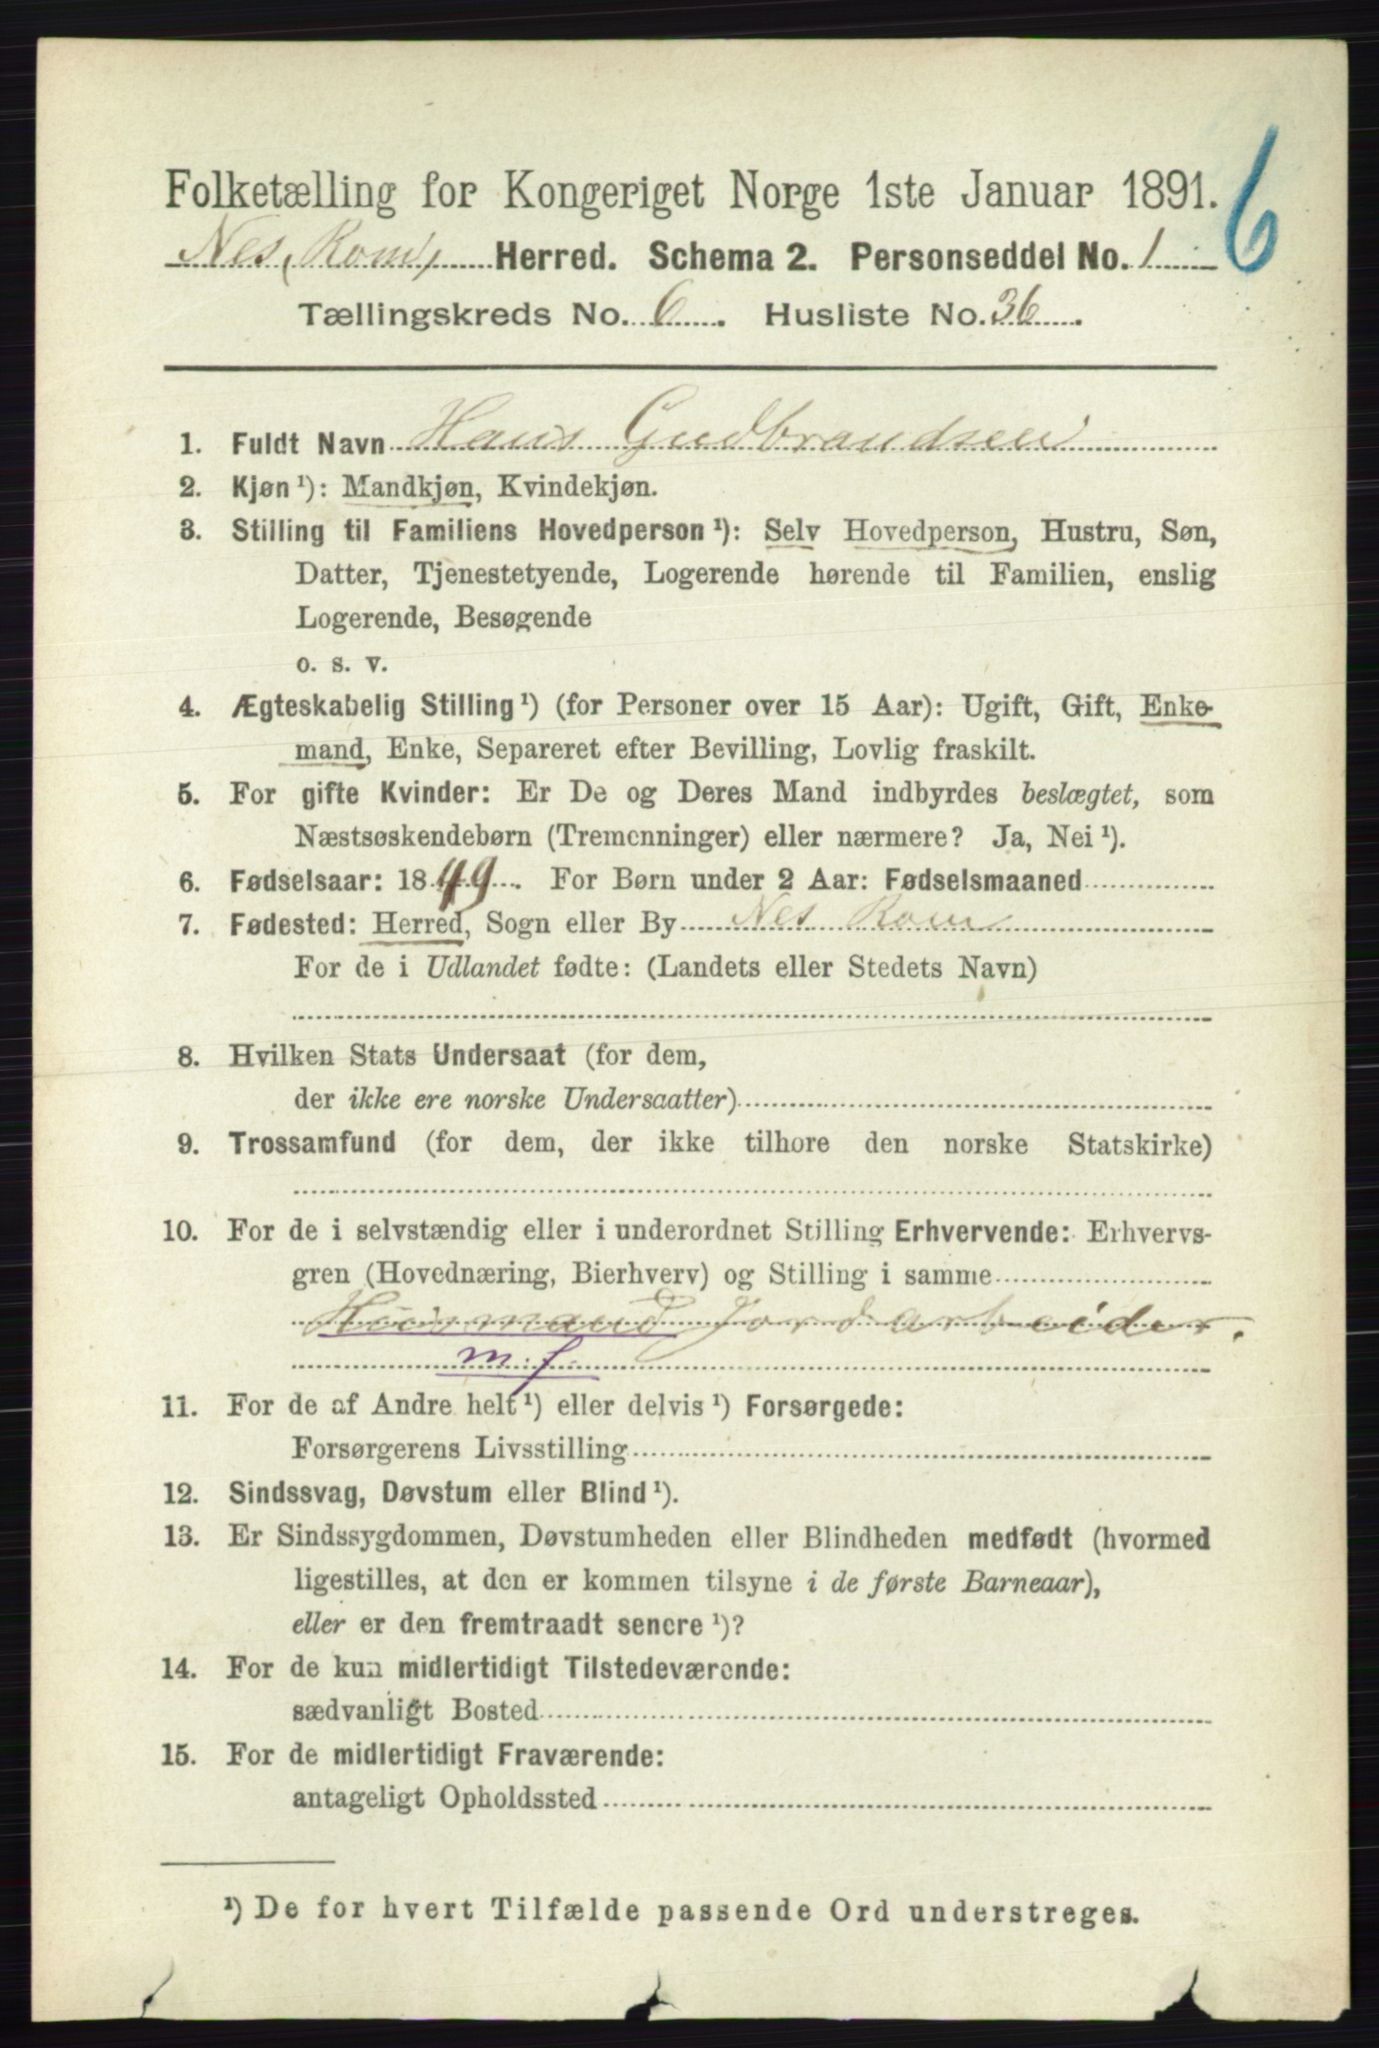 6
Folketælling for Kongeriget Norge 1ste Januar 1891.
Nes, Rom, Herred. Schema 2. Personseddel No. 1
Tællingskreds No. 6. Husliste No. 36.
1. Fuldt Navn Hans Gudbrandsen
2. Kjøn ¹): Mandkjøn, Kvindekjøn.
3. Stilling til Familiens Hovedperson ¹): Selv Hovedperson, Hustru, Søn,
Datter, Tjenestetyende, Logerende hørende til Familien, enslig
Logerende, Besøgende
o. s. v.
4. Ægteskabelig Stilling ¹) (for Personer over 15 Aar): Ugift, Gift, Enke-
mand, Enke, Separeret efter Bevilling, Lovlig fraskilt.
5. For gifte Kvinder: Er De og Deres Mand indbyrdes beslægtet, som
Næstsøskendebørn (Tremenninger) eller nærmere? Ja, Nei ¹).
6. Fødselsaar: 1849. For Børn under 2 Aar: Fødselsmaaned
7. Fødested: Herred, Sogn eller By Nes Rom
For de i Udlandet fødte: (Landets eller Stedets Navn)
8. Hvilken Stats Undersaat (for dem,
der ikke ere norske Undersaatter)
9. Trossamfund (for dem, der ikke tilhore den norske Statskirke)
10. For de i selvstændig eller i underordnet Stilling Erhvervende: Erhvervs-
gren (Hovednæring, Bierhverv) og Stilling i samme
Huusmand Jordarbeider.
m. f.
11. For de af Andre helt ¹) eller delvis ¹) Forsørgede:
Forsørgerens Livsstilling
12. Sindssvag, Døvstum eller Blind ¹).
13. Er Sindssygdommen, Døvstumheden eller Blindheden medfødt (hvormed
ligestilles, at den er kommen tilsyne i de første Barneaar),
eller er den fremtraadt senere ¹)?
14. For de kun midlertidigt Tilstedeværende:
sædvanligt Bosted
15. For de midlertidigt Fraværende:
antageligt Opholdssted
¹) De for hvert Tilfælde passende Ord understreges.